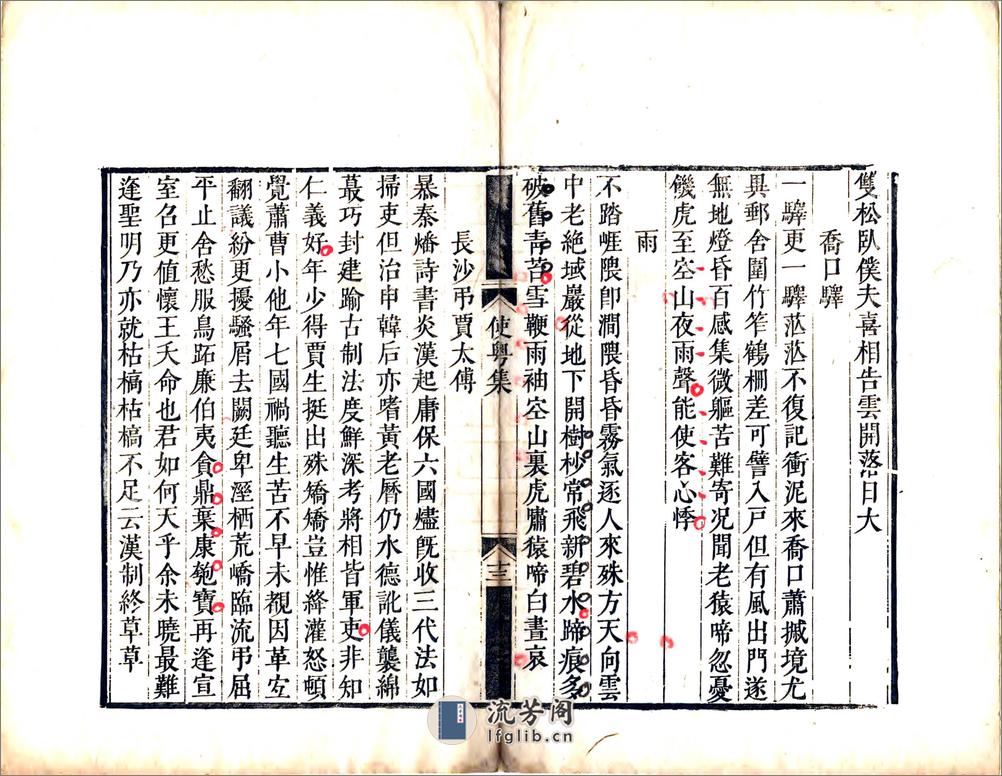 雙松臥僕夫喜相告雲開落日大
喬口驛
一驛更一驛茫茫不復記衝泥來喬口蕭摵境尤
異郵舍圍竹笮鶴柵差可譬入戸但有風出門遂
無地燈昏百感集微軀苦難寄况聞老猿啼忽憂
饑虎至空山夜雨聲能使客心悸
雨
不踏崕隈卽澗隈昏昏霧氣逐人來殊方天向雲
中老絶域巖從地下開樹杪常飛新碧水蹄痕多
破舊青苔雪鞭雨袖空山裏虎嘯猿啼白晝哀
使粤集
十三
長沙弔賈太傅
暴秦燔詩書炎漢起庸保六國燼旣收三代法如
掃吏但治申韓后亦嗜黃老曆仍水德訛儀襲綿
蕞巧封建踰古制法度鮮深考將相皆軍吏非知
仁義好年少得賈生挺出殊矯矯豈惟絳灌怒頓
覺蕭曹小他年七國禍聽生苦不早未覩因革宜
翻議紛更擾騷屑去闕廷卑溼栖荒嶠臨流弔屈
平止舍愁服鳥跖廉伯夷貪鼎棄康匏寶再逢宣
室召更値懷王夭命也君如何天乎余未曉最難
逢聖明乃亦就枯槁枯槁不足云漢制終草草
流芳阁
lfglib.cn